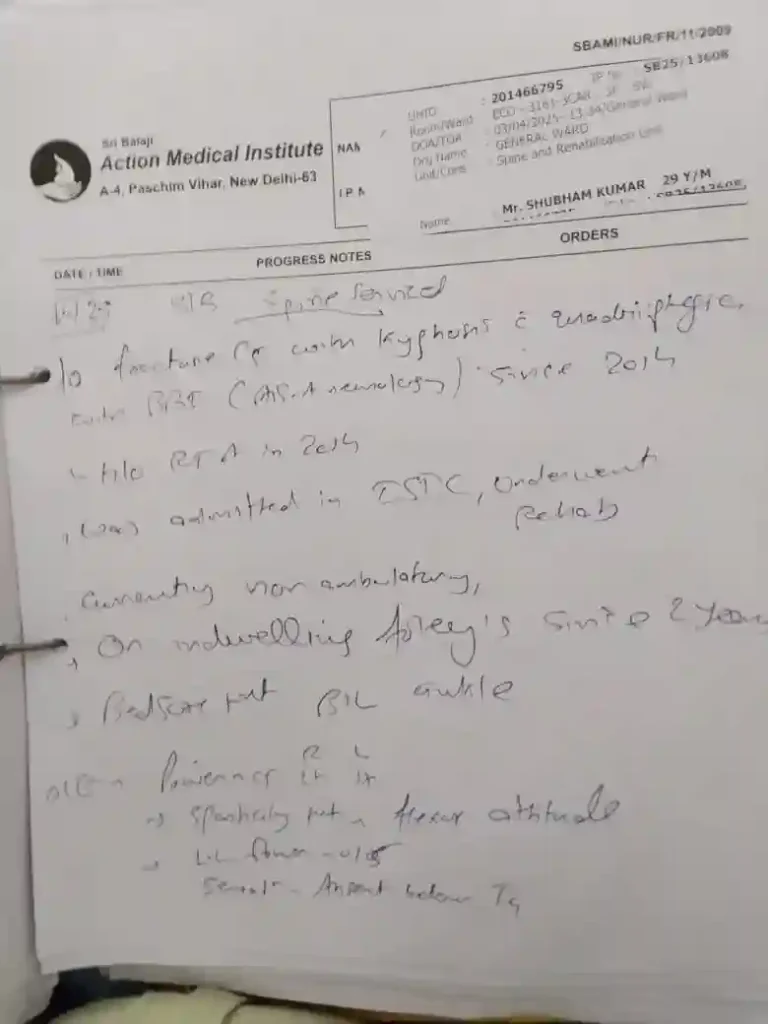 SBAMI/NUR/FR/11/2009
Sri Balaji
Action Medical Institute
A-4, Paschim Vihar, New Delhi-63
NAM
I.P. N
UHID : 201466795 IP No SB25/13608
Room/Ward : ECO - 3161
DOA/TOA : 03/04/2025 - 13:34/General Ward
Dny Name : GENERAL WARD
Unit/Cons : Spine and Rehabilitation Unit
Name Mr. SHUBHAM KUMAR 29 Y/M
DATE / TIME PROGRESS NOTES ORDERS
S/B Spine Service
fracture with Kyphosis c quadriplegic
(neurology) since 2014
H/o RTA in 2014
was admitted in ISIC, underwent
Rehab
Currently non ambulatory,
On indwelling foley's since 2 years
Bedsore B/L ankle
O/E Power R L
→ Spasticity flexor attitude
→ LL Power - 0/5
Absent below T4